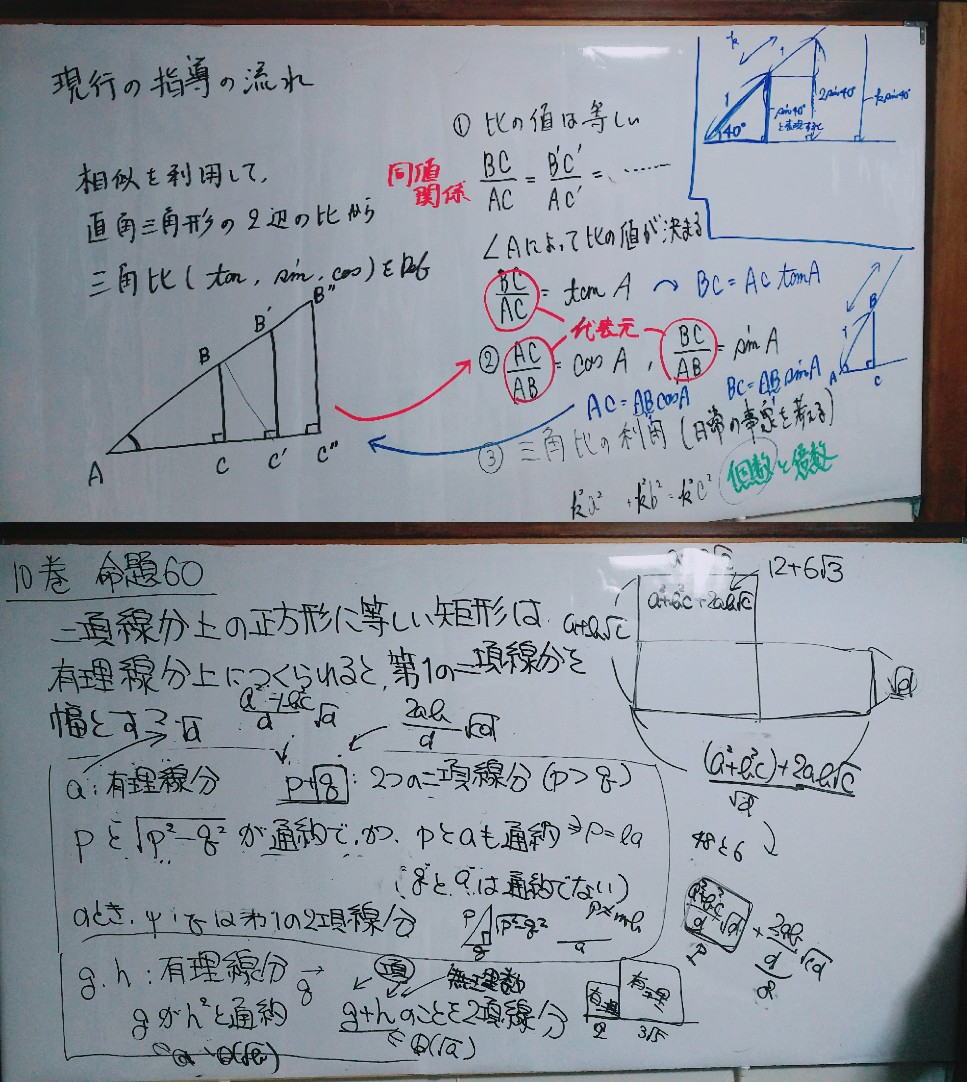 現行の指導の流れ
相似を利用して,
直角三角形の2辺の比から
三角比(tan, sin, cos)をDef
A
B
B'
B''
C
C'
C''
① 比の値は等しい
同値
関係
BC/AC = B'C'/AC' = ……
∠Aによって比の値が決まる
BC/AC = tan A
BC = AC tanA
代表元
② AC/AB = cos A , BC/AB = sin A
AC = AB cosA
BC = AB sinA
③ 三角比の利用 (日常の事象を考える)
個数と倍数
k²a² + k²b² = k²c²
k
1
1
40°
sin40°
と表現すると
2sin40°
k sin40°
1
A
B
C
10巻 命題60
二項線分上の正方形に等しい矩形は
有理線分上につくられると,第1の二項線分を
幅とする
√d
a²+b²c/d √d
2ab/d √cd
a : 有理線分
p+q : 2つの二項線分 (p > q)
pと√p²-q² が通約で,かつ, pとaも通約 ⇒ p = la
(qとaは通約でない)
のとき, p+qは第1の2項線分
p
√p²-q²
q
a
g, h : 有理線分
項
無理数
gがh²と通約
g+hのことを2項線分
有理
有理
2
3√5
12+6√3
a²+b²c+2ab√c
a+b√c
√d
(a²+b²c)+2ab√c/√d
48と6
a²+b²c/d √d + 2ab/d √cd
p